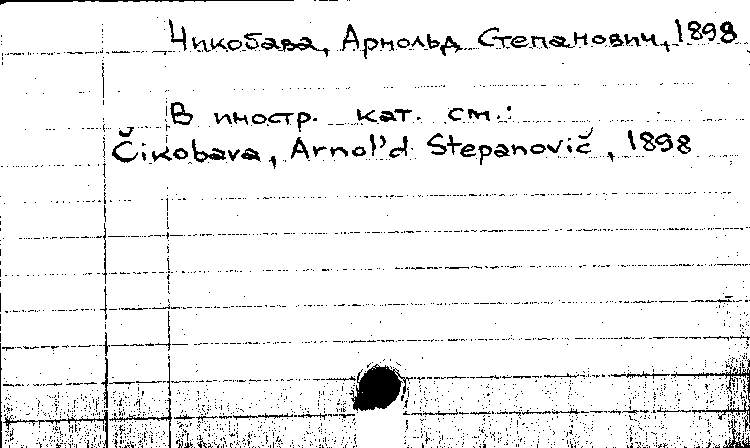 Чикобава, Арнольд Степанович, 1898
В иностр. кат. см.:
Čikobava, Arnol'd Stepanovič, 1898